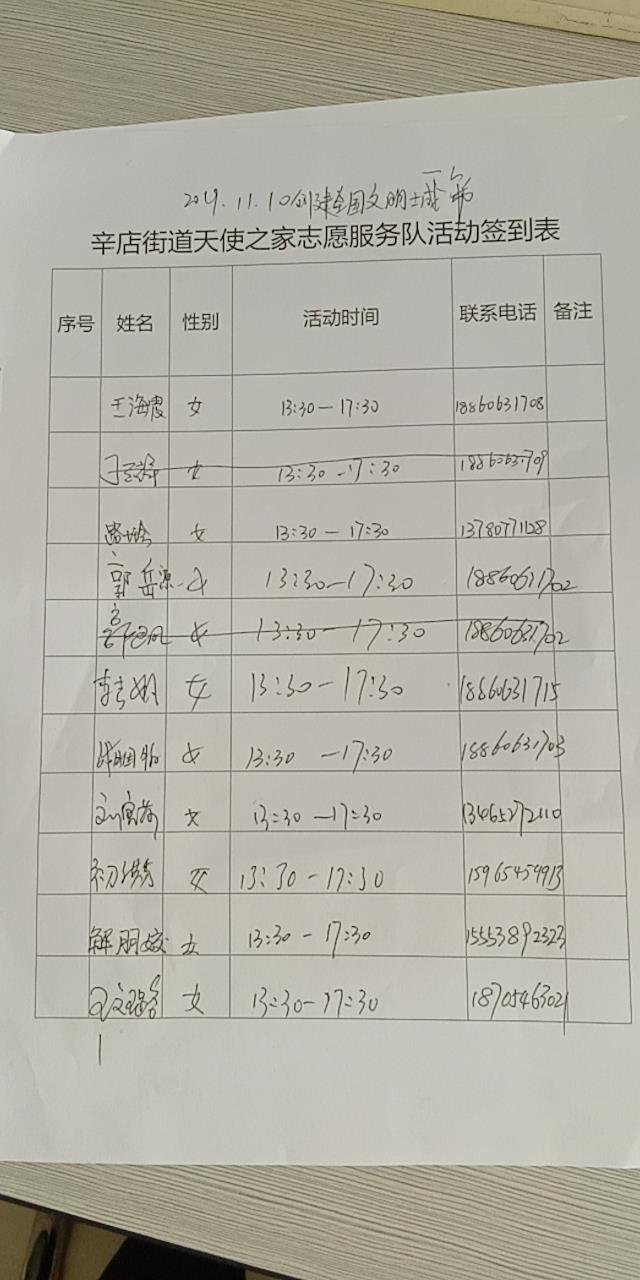 2019.11.10创建全国文明城市
辛店街道天使之家志愿服务队活动签到表
序号 姓名 性别 活动时间 联系电话 备注
王海霞 女 13:30-17:30 18860631708
女 13:30-17:30 18860631709
女 13:30-17:30 13780771128
郭岳源 女 13:30-17:30 18860631702
女 13:30-17:30 18860631702
李 女 13:30-17:30 18860631715
女 13:30-17:30 18860631703
刘 女 13:30-17:30 13465272110
初 女 13:30-17:30 15965454913
解朋姣 女 13:30-17:30 15553892323
女 13:30-17:30 18705463021